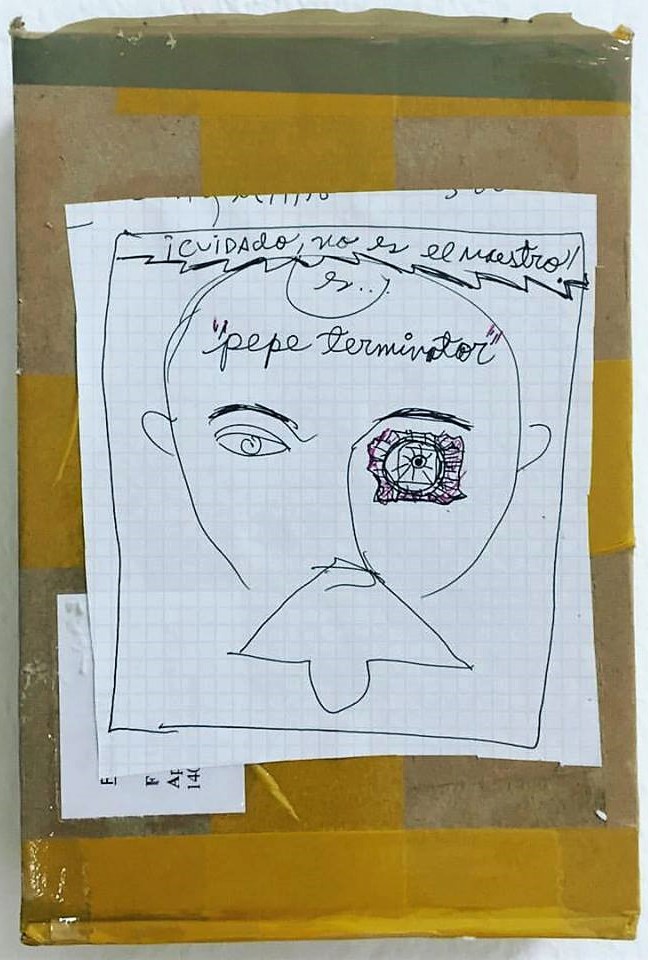 ¡CUIDADO, no es el maestro!
es...
"pepe terminator"
F
Ap
140